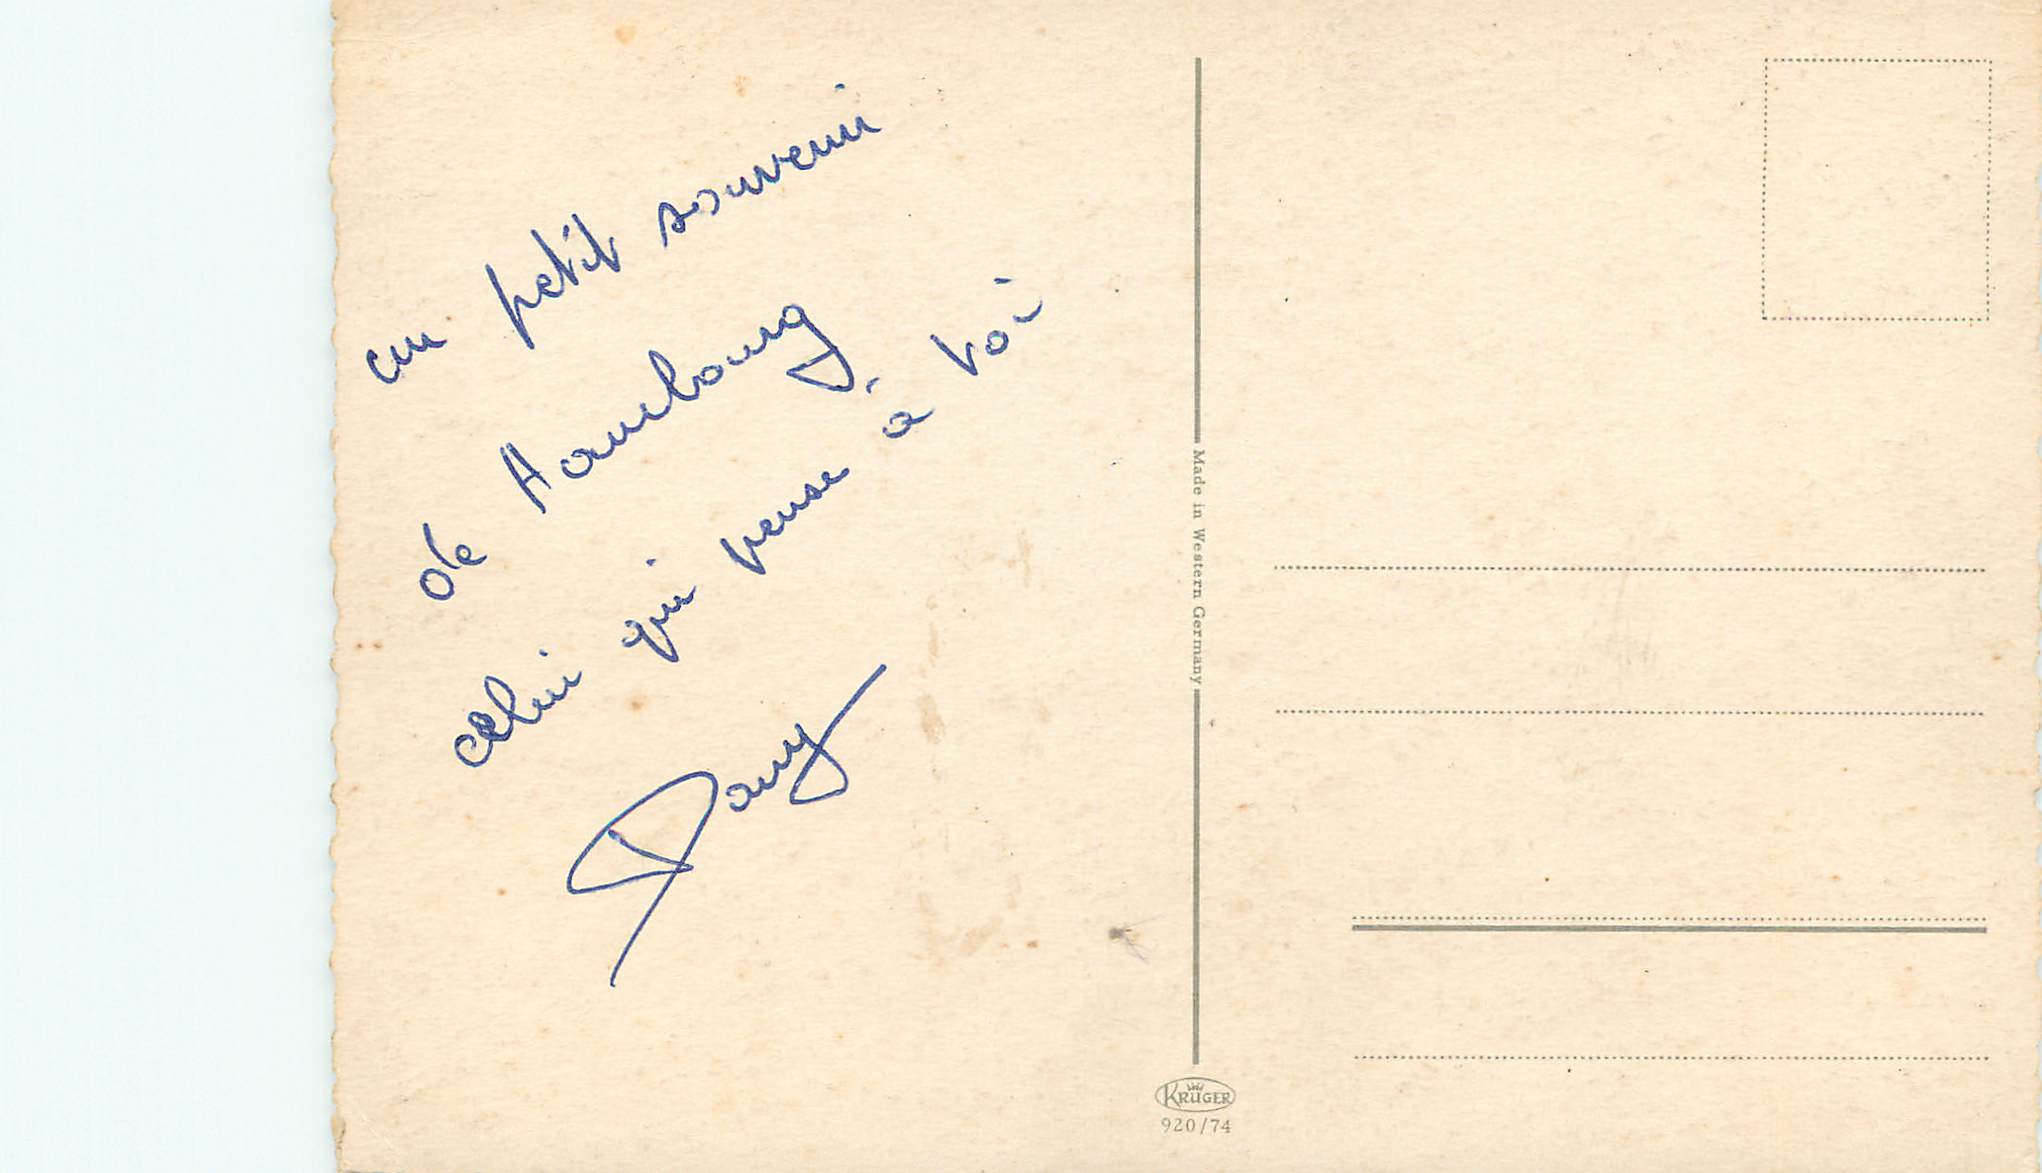 un petit souvenir
de Hambourg
celui qui pense à toi
Dany
Made in Western Germany
KRÜGER
920/74